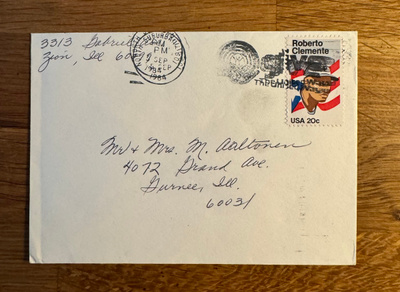 3313 Gabriel
Zion, Ill 600
PM
SEP
1984
Roberto
Clemente
USA 20c
Mr & Mrs. M. Aaltonen
4072 Grand Ave.
Gurnee, Ill.
60031